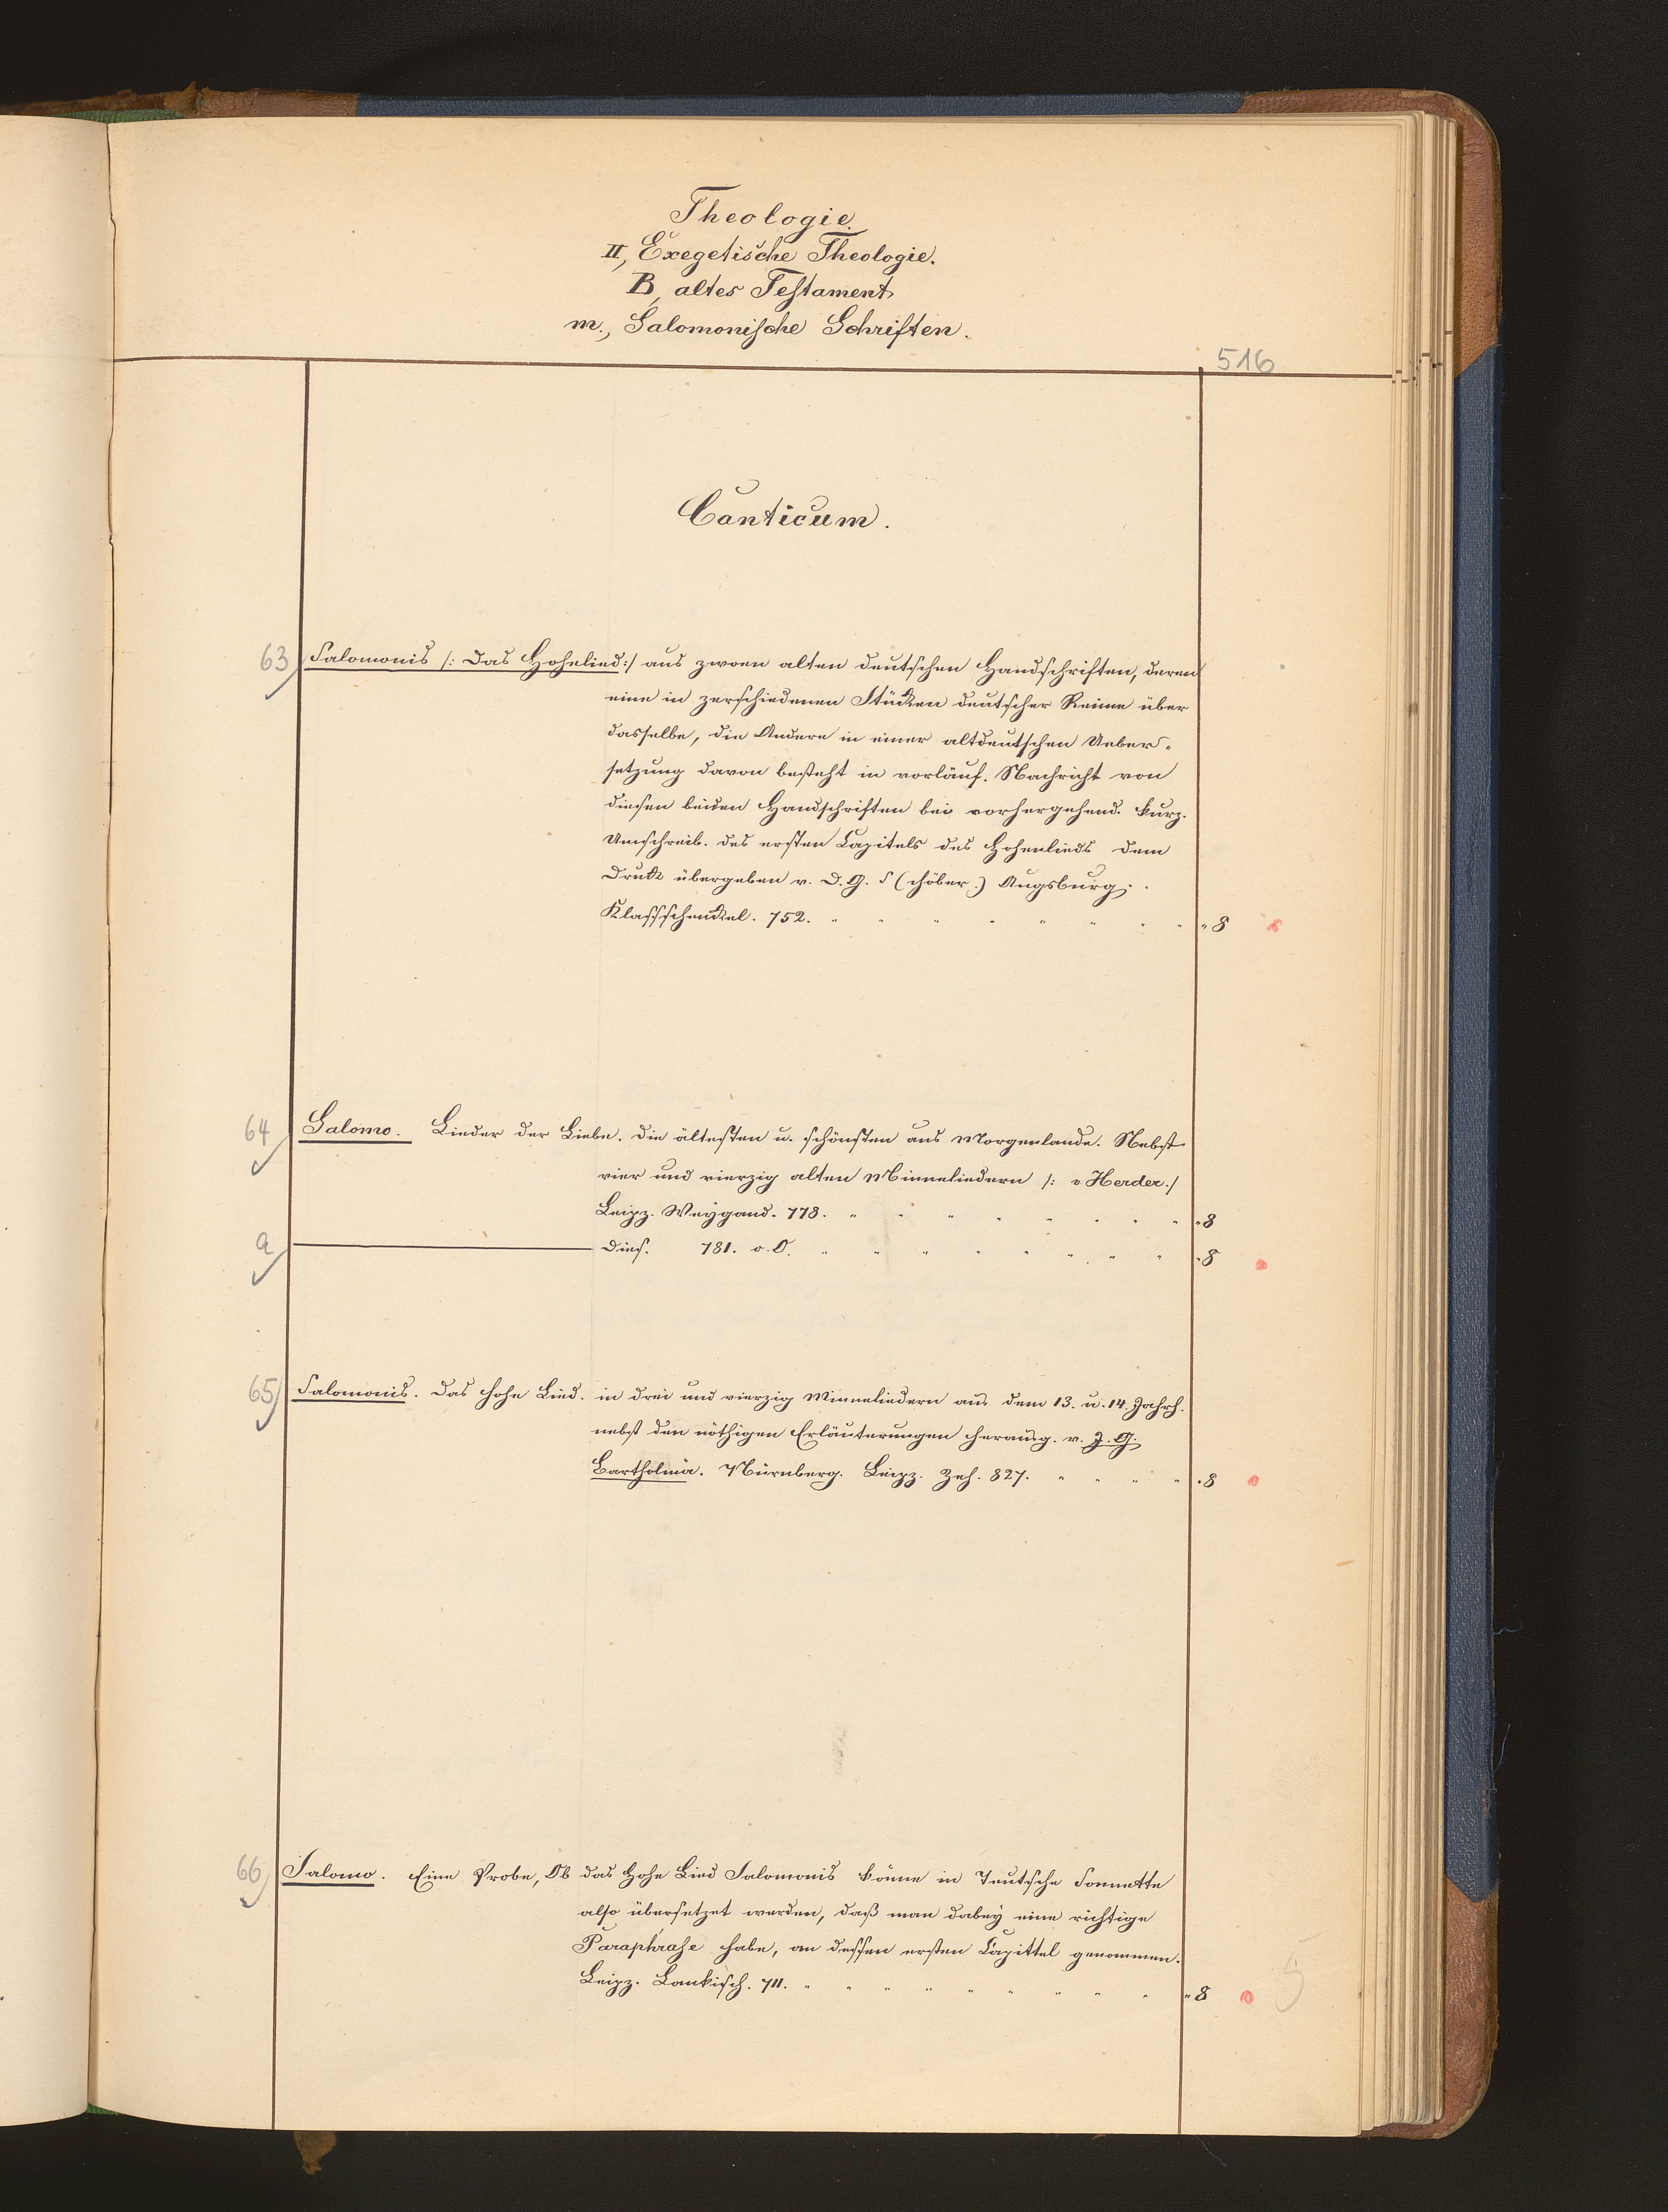 Theologie.
II, Exegetische Theologie.
B, altes Testament
m., Salomonische Schriften.
516
Canticum.
63 Salomonis /: Das Hohelied :/ aus zwoen alten deutschen Handschriften, deren
eine in zerschiedenen Stücken deutscher Reime über
dasselbe, die Andere in einer altdeutschen Ueber-
setzung davon besteht in vorläuf. Nachricht von
diesen beiden Handschriften bei vorhergehend. kurz.
Umschreib. des ersten Capitels des Hohenlieds dem
Druck übergeben v. D. G. S (chöber.) Augsburg.
Klaffschenckel. 752. " " " " " " " " 8
64 Salomo. Lieder der Liebe. die ältesten u. schönsten aus Morgenlande. Nebst
vier und vierzig alten Minneliedern /: v Herder./
Leipz. Weygand. 778. " " " " " " " " 8
a Dies. 781. o. O. " " " " " " " " 8
65 Salomonis. Das hohe Lied. in drei und vierzig Minneliedern aus dem 13. u. 14. Jahrh.
nebst den nöthigen Erläuterungen herausg. v. J. G.
Bartholmä. Nürnberg. Leipz. Zeh. 827. " " " " 8
66 Salomo. Eine Probe, Ob das Hohe Lied Salomonis könne in Teutsche Sonnette
also übersetzet werden, daß man dabey eine richtige
Paraphrase habe, an dessen ersten Capittel genommen.
Leipz. Lankisch. 711. " " " " " " " " " 8
5